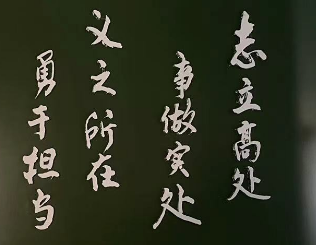 志立高处
事做实处
义之所在
勇于担当